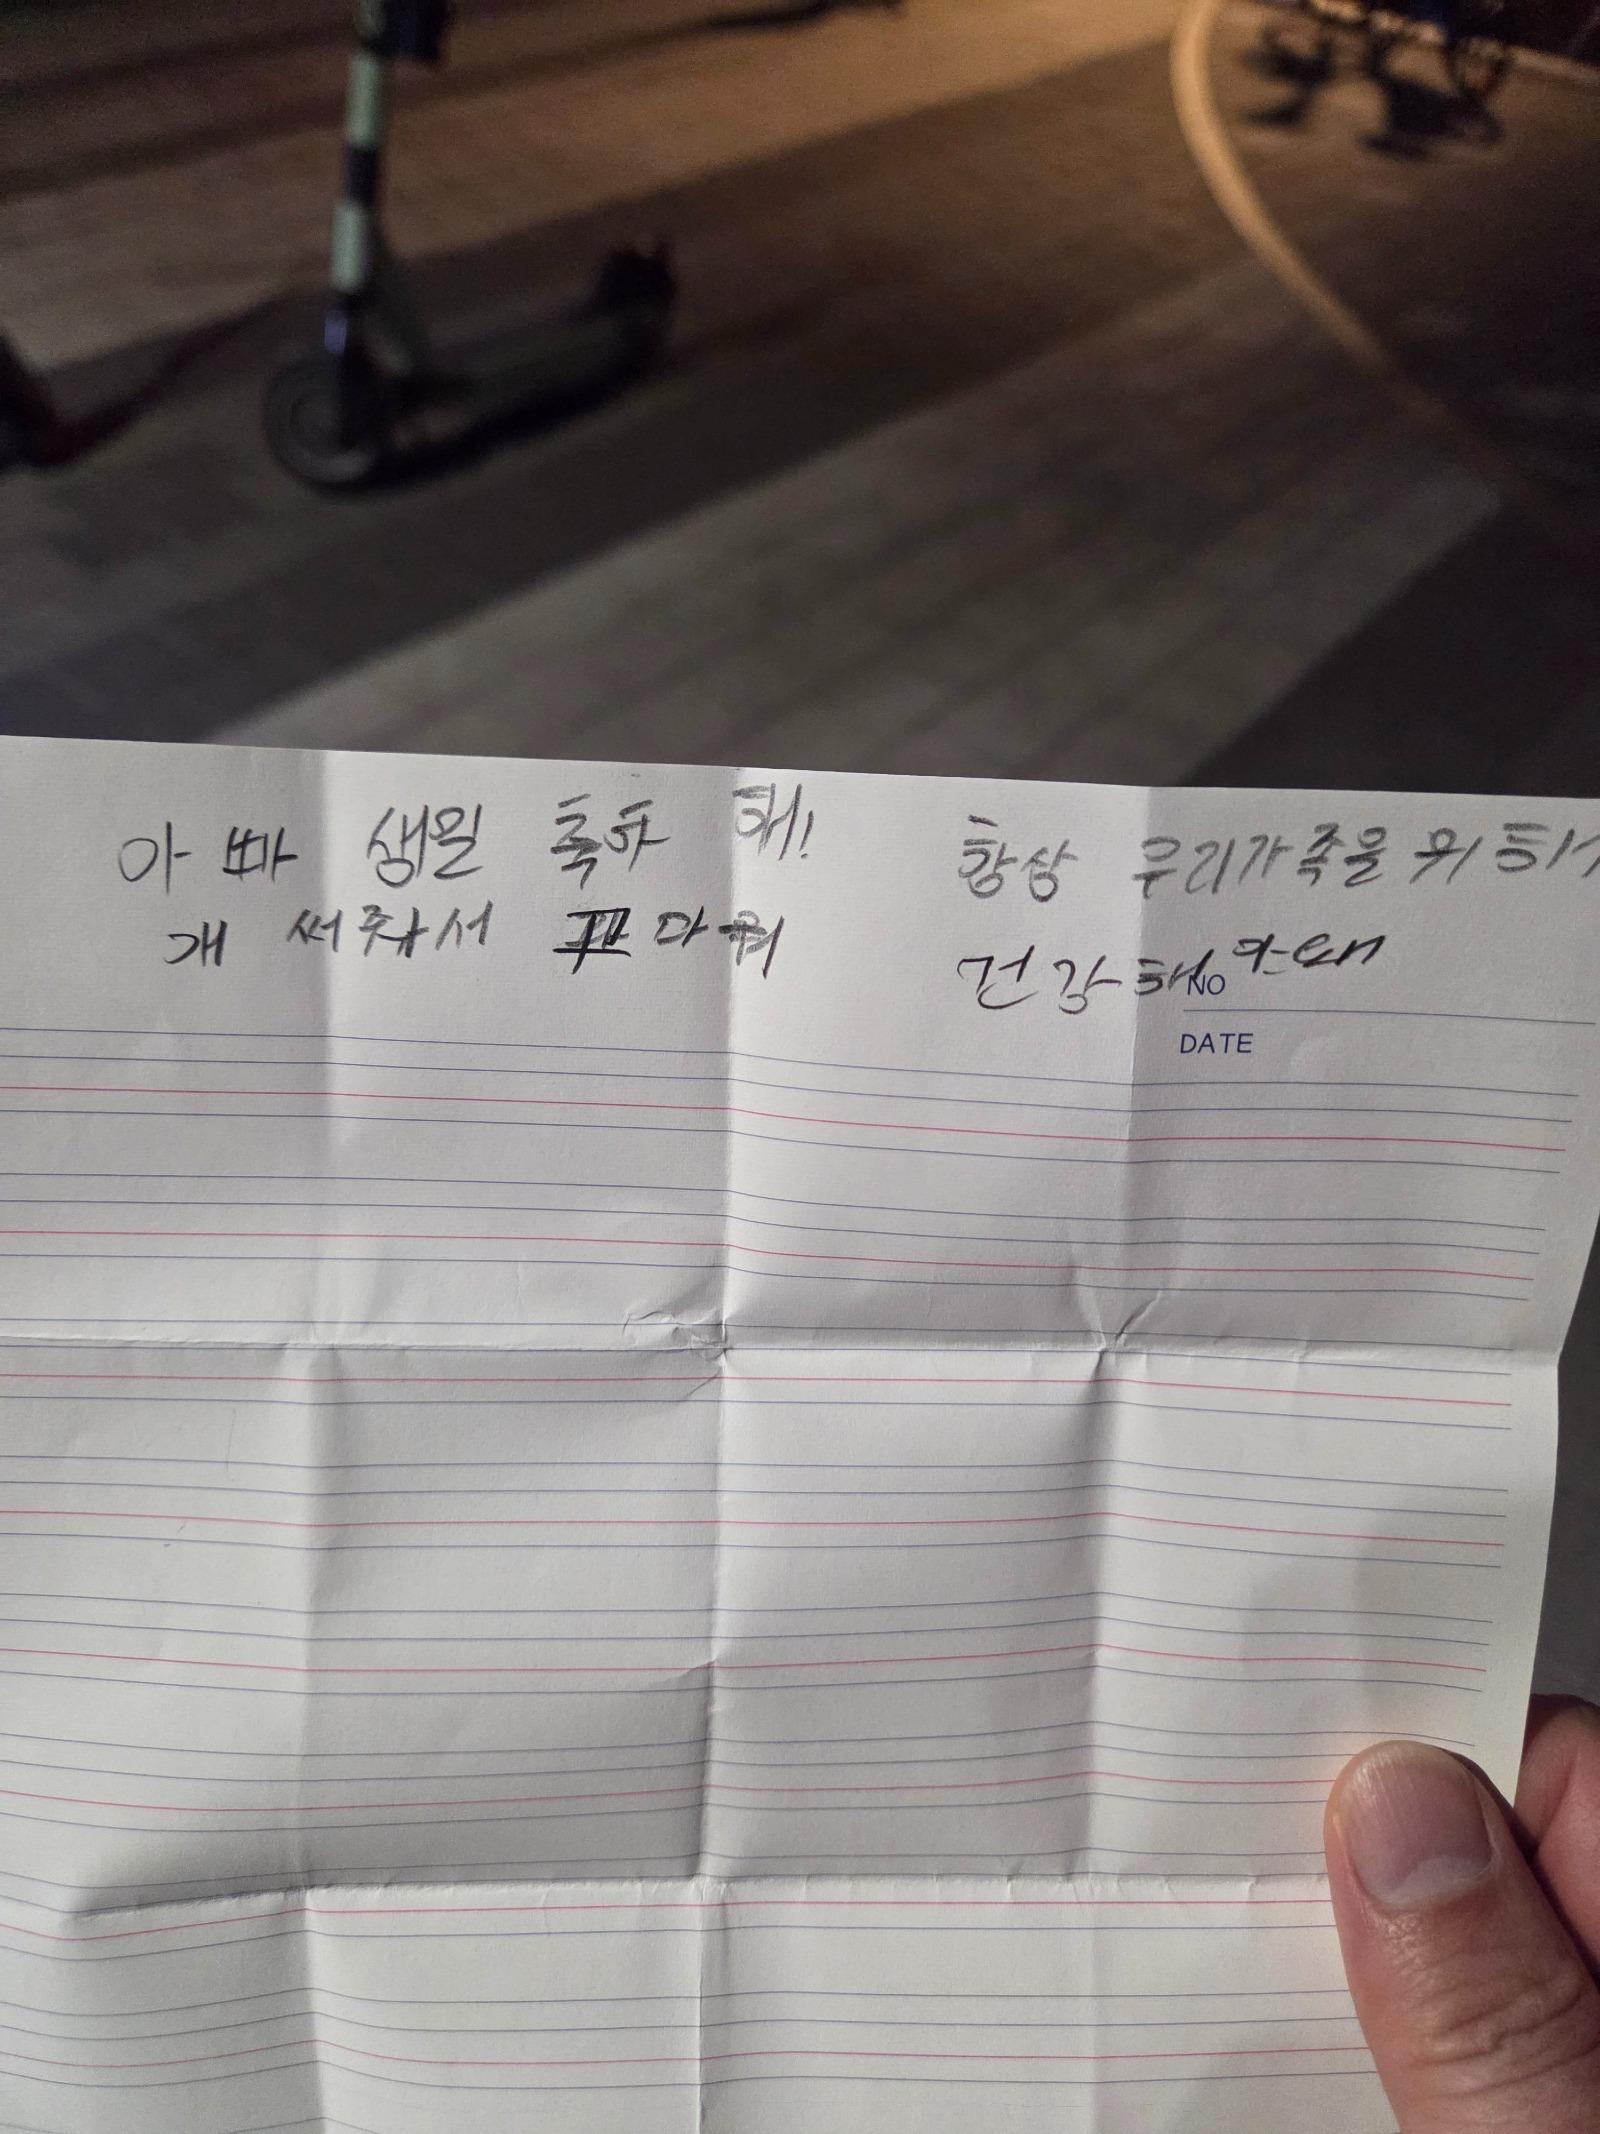 아빠 생일 축하 해! 항상 우리가족을 위하
개 써줘서 고마워 건강해
NO
DATE